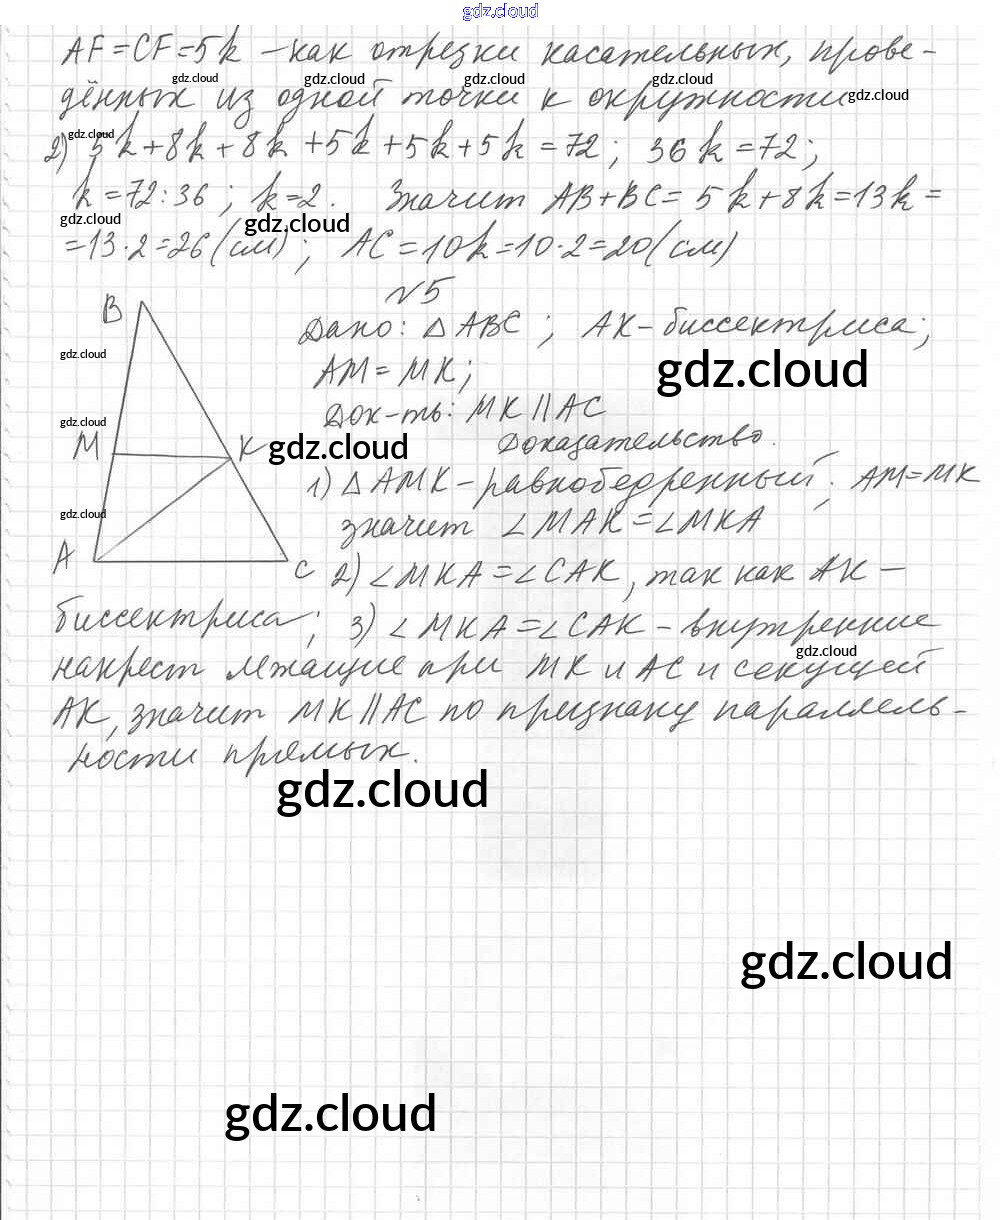 gdz.cloud
AF = CF = 5k – как отрезки касательных, прове-
gdz.cloud gdz.cloud gdz.cloud gdz.cloud
дённых из одной точки к окружности gdz.cloud
gdz.cloud
2) 5k + 8k + 8k + 5k + 5k + 5k = 72 ; 36k = 72 ;
k = 72 : 36 ; k = 2 . Значит AB + BC = 5k + 8k = 13k =
gdz.cloud gdz.cloud
= 13 · 2 = 26 (см) ; AC = 10k = 10 · 2 = 20 (см)
№5
B
Дано: △ ABC ; AK – биссектриса ;
gdz.cloud gdz.cloud
AM = MK ;
Док-ть: MK || AC
gdz.cloud
M K gdz.cloud
Доказательство.
1) △ AMK – равнобедренный ; AM = MK
gdz.cloud
значит ∠ MAK = ∠ MKA
A C
2) ∠ MKA = ∠ CAK , так как AK –
биссектриса ; 3) ∠ MKA = ∠ CAK – внутренние
gdz.cloud
накрест лежащие при MK и AC и секущей
AK, значит MK || AC по признаку параллель-
ности прямых.
gdz.cloud
gdz.cloud
gdz.cloud